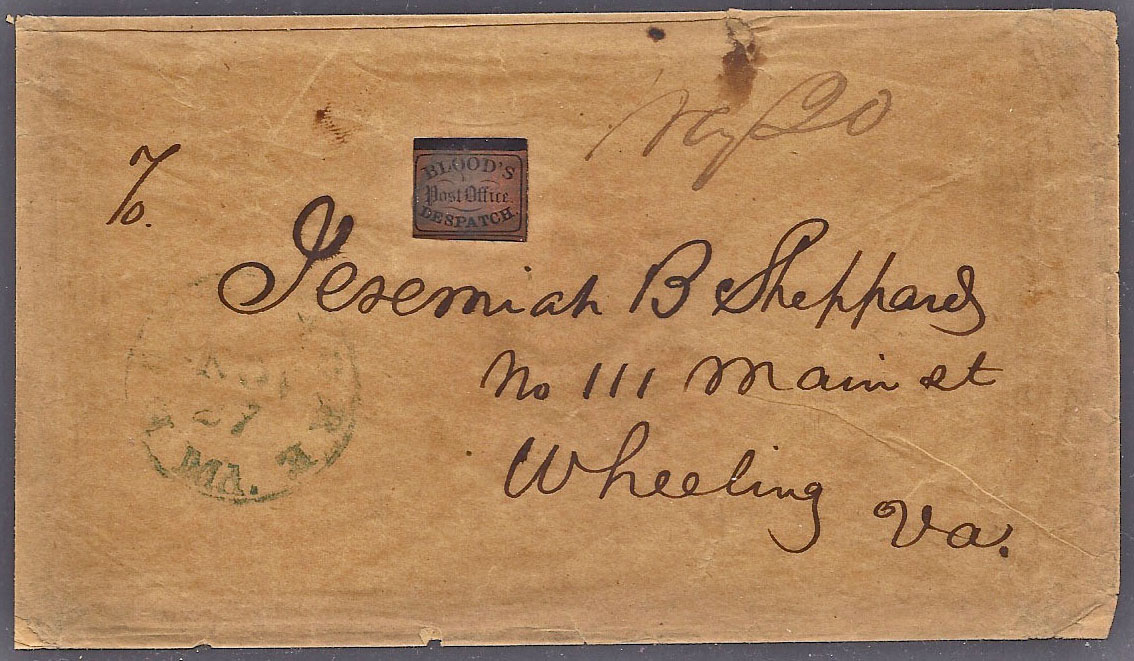 BLOOD'S
Post Office
DESPATCH.
To.
Jeremiah B Sheppard
No 111 Main st
Wheeling Va.
27
MA.